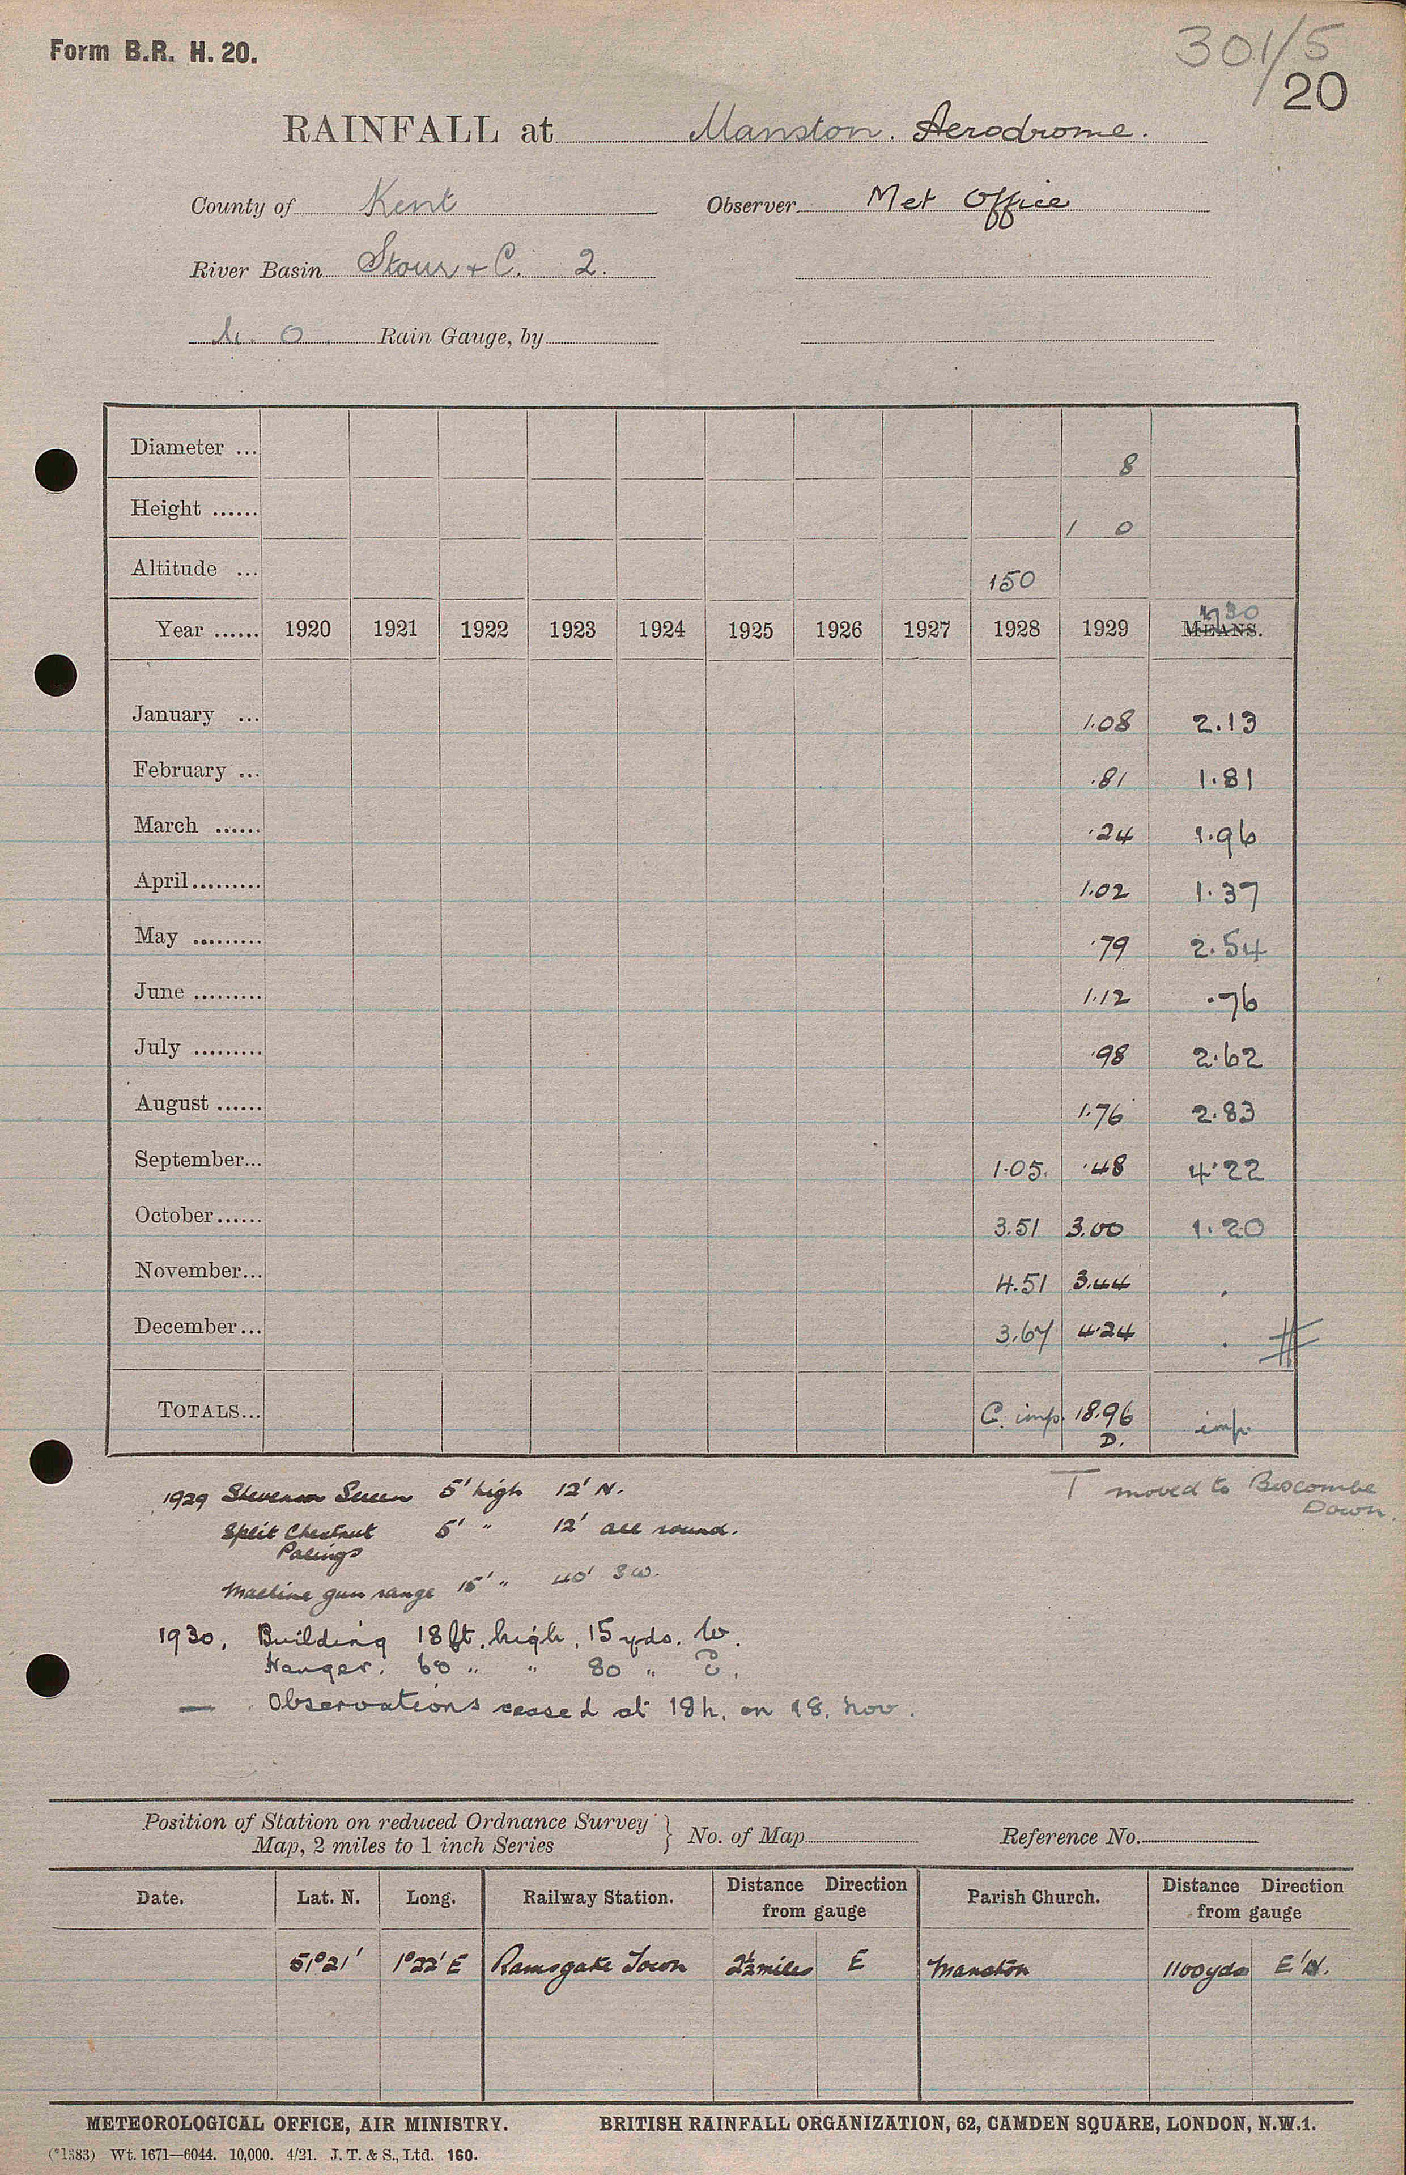 Form B.R. H. 20.
301/5
20
RAINFALL at Manston. Aerodrome.
County of Kent Observer Met Office
River Basin Stour & C. 2.
M. O. Rain Gauge, by
Diameter ... 8
Height ...... 1 0
Altitude ... 150
Year ...... 1920 1921 1922 1923 1924 1925 1926 1927 1928 1929 MEANS. 1930
January ... 1.08 2.13
February ... .81 1.81
March ...... .24 1.96
April ......... 1.02 1.37
May ......... .79 2.54
June ......... 1.12 .76
July ......... .98 2.62
August ...... 1.76 2.83
September... 1.05. .48 4.22
October...... 3.51 3.00 1.20
November... 4.51 3.44 .
December... 3.67 4.24 . #
TOTALS... C. imp. 18.96 imp.
D.
T moved to Boscombe
Down.
1929 Stevenson Screen 5' high 12' N.
Split Chestnut 5' " 12' all round.
Palings
Machine gun range 15' " 40' SW.
1930, Building 18 ft. high, 15 yds. W.
Hanger. 60 " " 80 " E.
— Observations ceased at 18h. on 18. Nov.
Position of Station on reduced Ordnance Survey } No. of Map Reference No.
Map, 2 miles to 1 inch Series
Date. Lat. N. Long. Railway Station. Distance Direction from gauge Parish Church. Distance Direction from gauge
51°21' 1°22' E Ramsgate Town 2½ miles E Manston 1100 yds E'N.
METEOROLOGICAL OFFICE, AIR MINISTRY. BRITISH RAINFALL ORGANIZATION, 62, CAMDEN SQUARE, LONDON, N.W.1.
(*1383) Wt. 1671—6044. 10,000. 4/21. J. T. & S., Ltd. 160.